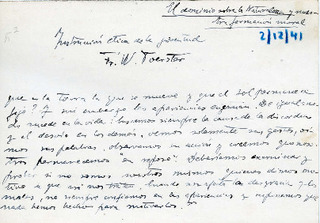 El dominio sobre la Naturaleza y nues-
tra formación moral
2/12/41
Instrucción ética de la juventud
Fr. W. Foerster
que es la tierra la que se mueve y que el sol permanece
fijo? Y sin embargo las apariencias engañan. De igual mo-
do sucede en la vida: buscamos siempre la causa de la discordia
y el desvío en los demás, vemos solamente sus gestos, oí-
mos sus palabras, observamos su acción y creemos que noso-
tros permanecemos "en reposo". Deberíamos examinar y
probar si no somos nosotros mismos quienes dimos mo-
tivo a que así nos traten. Cuando nos azota la desgracia y los
males, no siempre confiemos en las apariencias y
nada hemos hecho para motivarlos.